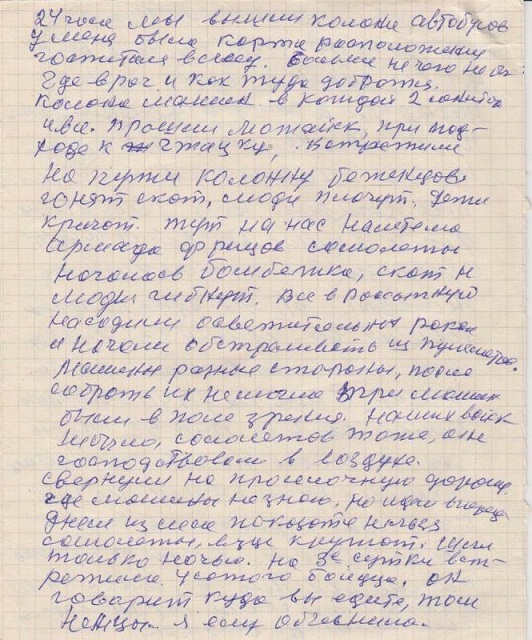 24 часа мы вышли колона автобусов
У меня была карта расположения
госпиталя в лесу. Больше ничего
Где враг и как туда добратся.
Колона машин в каждой 2 санит
и все. Прошли Можайск, при под-
ходе к Гжатску, встретили
На пути колонну беженцев
гонят скот, люди плачут. Дети
кричат. тут на нас налетела
Армада фрицов самолеты
Началась бомбежка, скот и
люди гибнут. Все в рассыпную
насадили осветительных ракет
и начали обстреливать из пулеметов.
Машины разные стороны, после
собрать их не могла три машин
были в поле зрения. Наших войск
небыло, самолетов тоже, они
господствовали в воздухе.
Свернули на проселочную дорогу.
где машины незнаю, но идем вперед
Днем из леса нельзя
самолеты еще кружат. Шли
только ночью. На 3е сутки вст-
ретила бойца. он
говорит куда вы едите, там
Немцы. я ему объяснила.